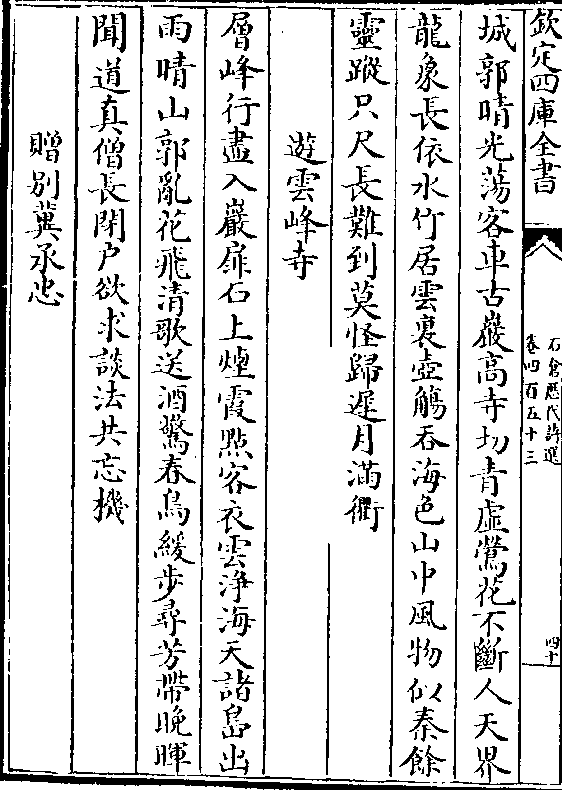 欽定四庫全書
石倉歷代詩選
卷四百五十三
四十
城郭晴光蕩客車古巖高寺切青虛鶯花不斷人天界
龍象長依水竹居雲裏壺觴吞海色山中風物似秦餘
靈蹤只尺長難到莫怪歸遲月滿衢
遊雲峰寺
層峰行盡入巖扉石上煙霞㸃客衣雲浄海天諸島出
雨晴山郭亂花飛清歌送酒驚春鳥緩步尋芳帶晚暉
聞道真僧長閉户欲求談法共忘機
贈别冀承忠